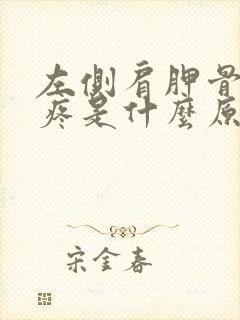 左側肩胛骨
疼是什麼原
宋金春